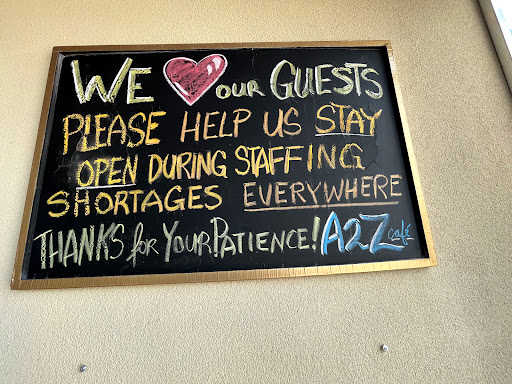 WE ❤ OUR GUESTS
PLEASE HELP US STAY
OPEN DURING STAFFING
SHORTAGES EVERYWHERE
THANKS for YOUR PATIENCE! A2Z café